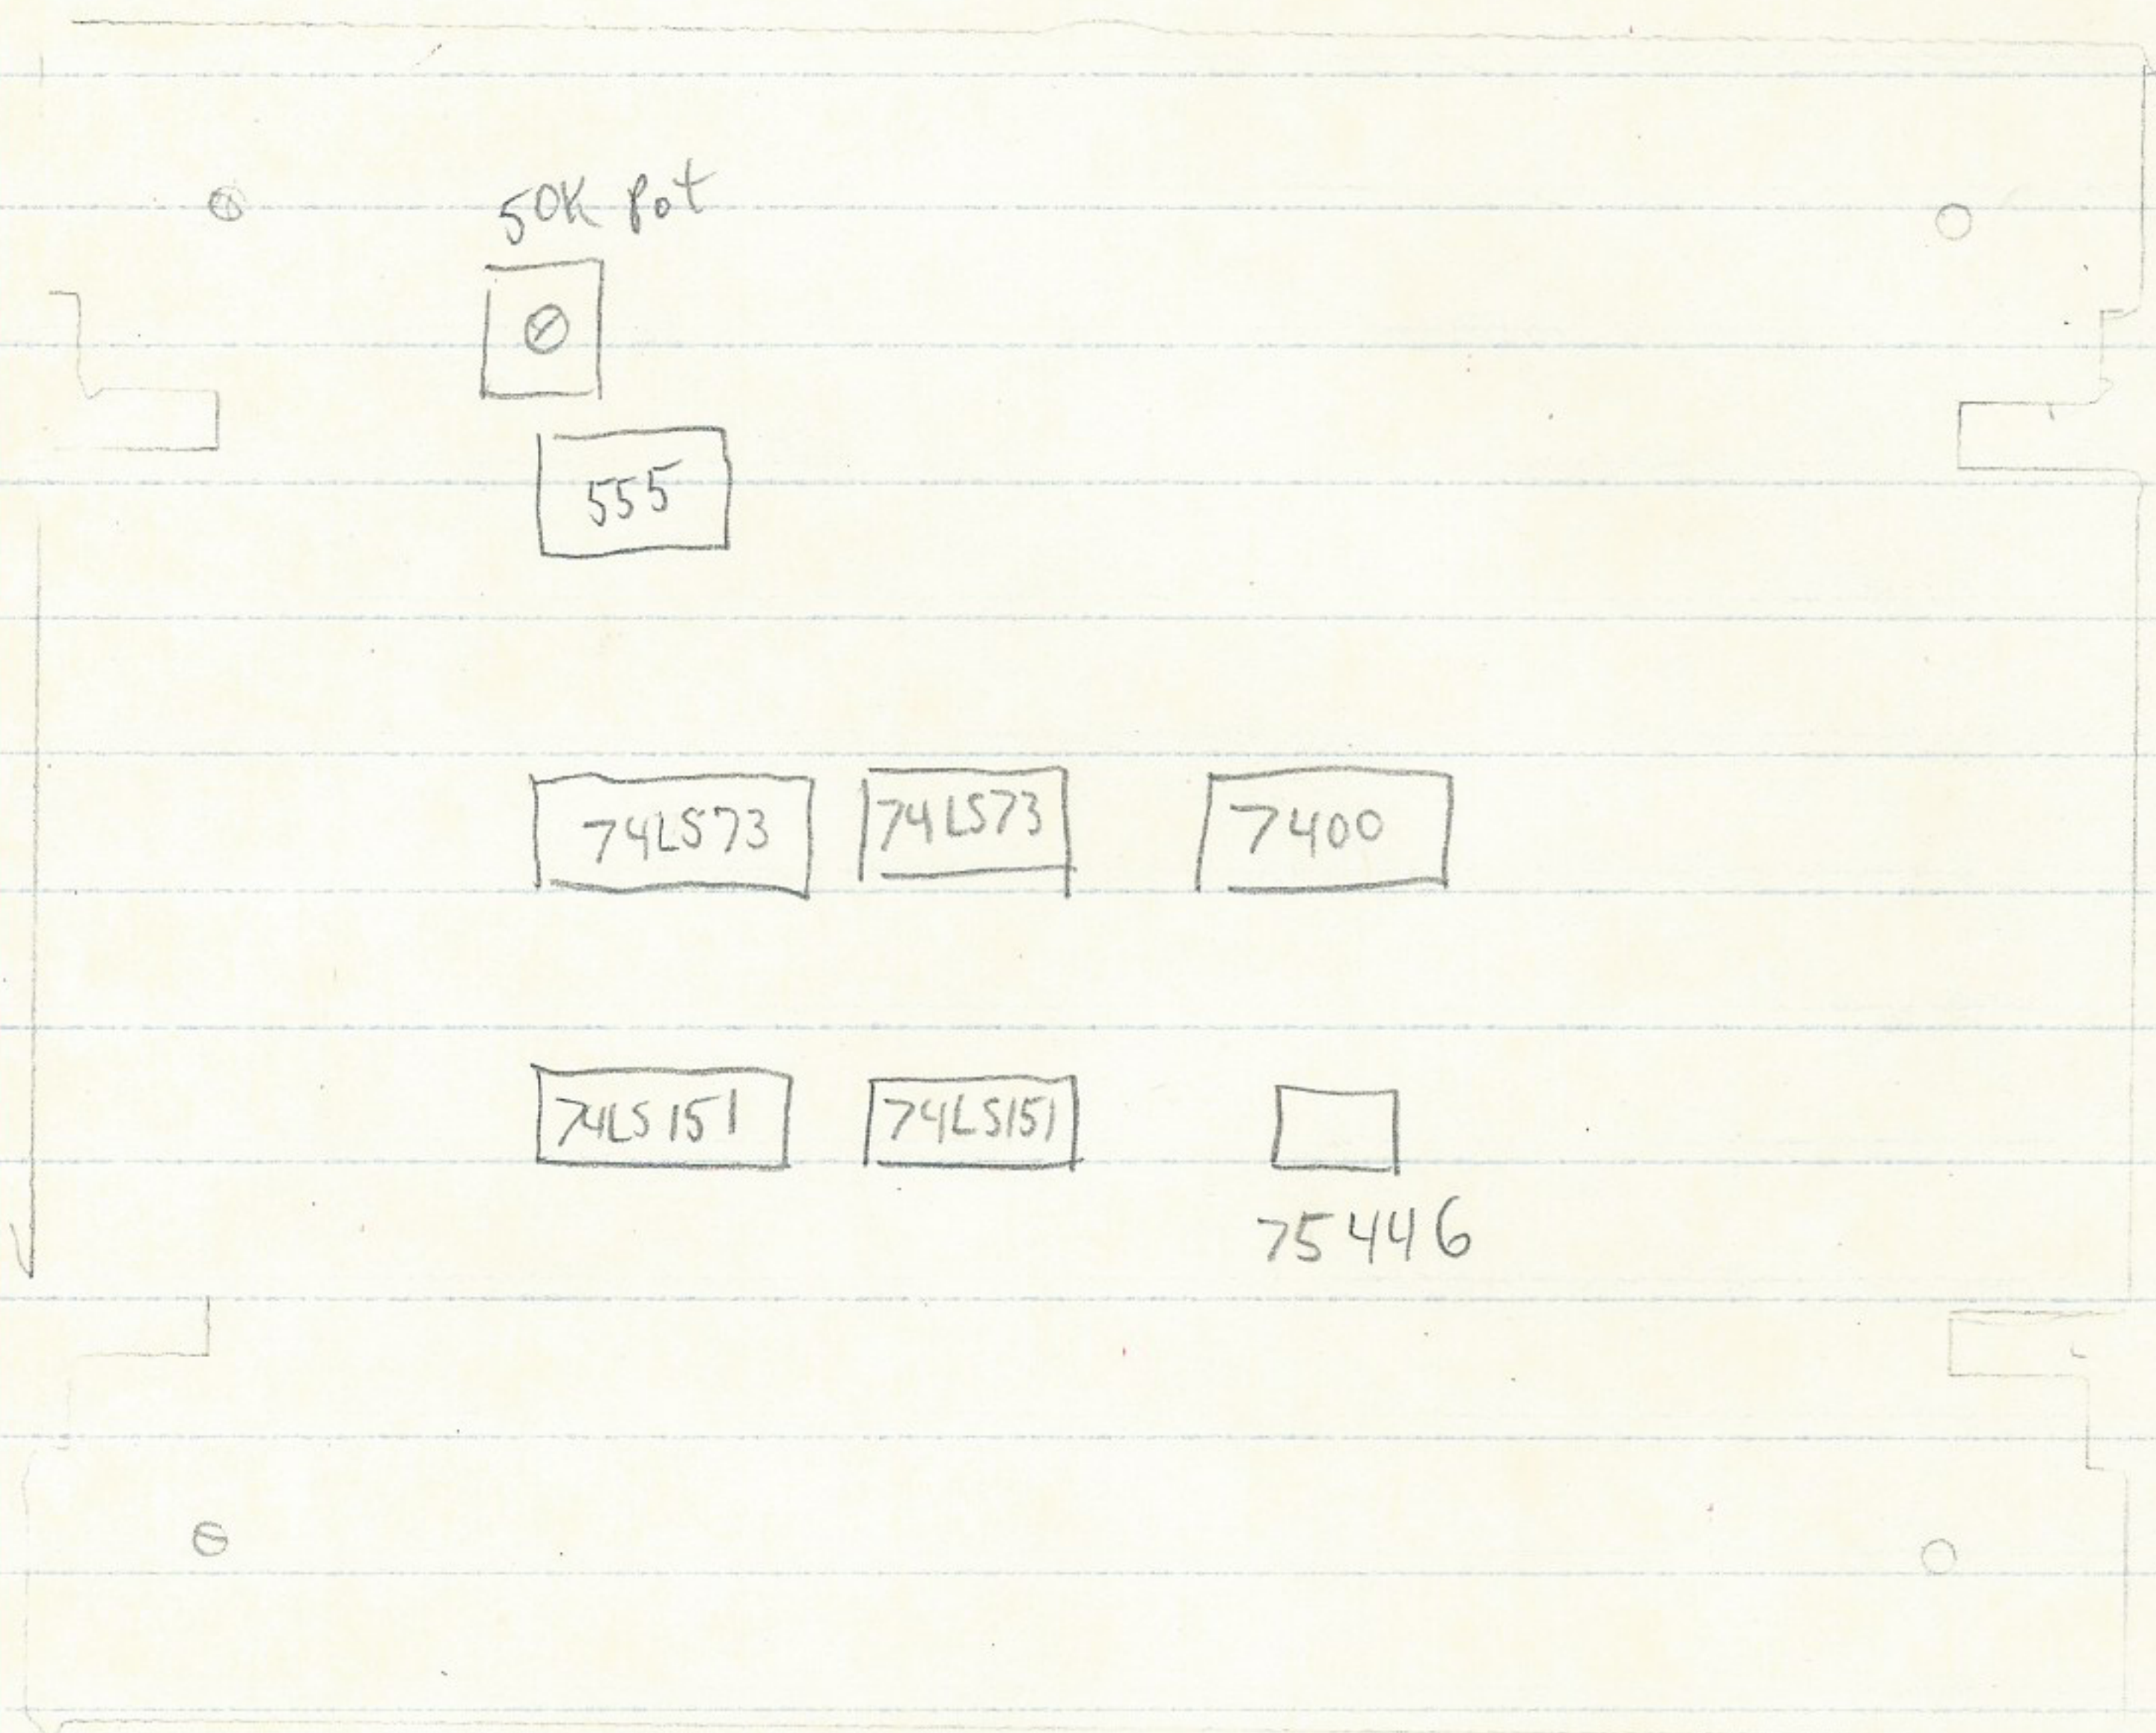 50K Pot
555
74LS73 74LS73 7400
74LS151 74LS151
75446